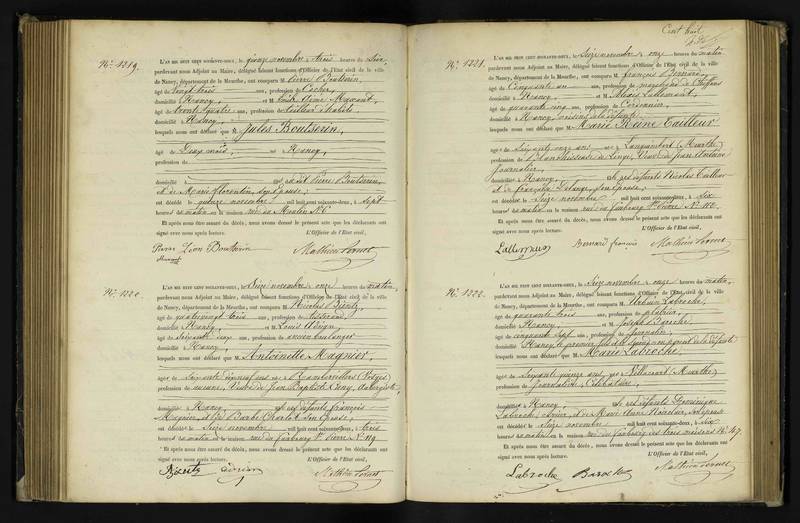 Cent huit
N.° 1219.
L'AN MIL HUIT CENT SOIXANTE-DEUX, le quinze novembre à trois heures du soir,
pardevant nous Adjoint au Maire, délégué faisant fonctions d'Officier de l'État civil de la ville
de Nancy, département de la Meurthe, ont comparu M. Pierre Boutserin,
âgé de vingt trois ans, profession de Cocher,
domicilié à Nancy, et M. Louis Aimé Mansant,
âgé de trente quatre ans, profession de
domicilié à Nancy,
lesquels nous ont déclaré que M. Jules Boutserin,
âgé de Deux mois, né à Nancy,
profession de
domicilié à est né dit Pierre Boutserin,
et de Marie Florentin, son épouse;
est décédé le quinze novembre mil huit cent soixante-deux, à sept
heures du matin en la maison rue du Moulin N.° 6
Et après nous être assuré du décès, nous avons dressé le présent acte que les déclarants ont
signé avec nous après lecture. L'Officier de l'État civil,
Pierre Léon Boutserin Mathieu
N.° 1220.
L'AN MIL HUIT CENT SOIXANTE-DEUX, le Seize novembre à onze heures du matin,
pardevant nous Adjoint au Maire, délégué faisant fonctions d'Officier de l'État civil de la ville
de Nancy, département de la Meurthe, ont comparu M. Nicolas Bientz,
âgé de quatrevingt trois ans, profession de tisserand,
domicilié à Nancy, et M. Louis Adrian,
âgé de soixante deux ans, profession de ancien boulanger
domicilié à Nancy,
lesquels nous ont déclaré que M. Antoinette Magnier,
âgé de Soixante dixneuf ans née à Rambervillers (Vosges)
profession de Veuve de Jean Baptiste Cuny, aubergiste,
domiciliée à Nancy et des défunts François
Magnier, et de Barbe Charlot son épouse;
est décédée le Seize novembre mil huit cent soixante-deux, à trois
heures du matin en la maison rue du faubourg St. Pierre N.° 119
Et après nous être assuré du décès, nous avons dressé le présent acte que les déclarants ont
signé avec nous après lecture. L'Officier de l'État civil,
Adrian Mathieu
N.° 1221.
L'AN MIL HUIT CENT SOIXANTE-DEUX, le Seize novembre à onze heures du matin
pardevant nous Adjoint au Maire, délégué faisant fonctions d'Officier de l'État civil de la ville
de Nancy, département de la Meurthe, ont comparu M. françois Bernard,
âgé de Cinquante un ans, profession de marchand de
domicilié à Nancy, et M. Lallemant,
âgé de quarante cinq ans, profession de Cordonnier,
domicilié à Nancy, voisins de la défunte
lesquels nous ont déclaré que M. Marie Reine Tailleur
âgée de Soixante onze ans née à (Meurthe)
profession de Blanchisseuse de Linge, Veuve de Jean Antoine
journalier,
domiciliée à Nancy et des défunts Nicolas Tailleur
et de françoise Delange, son épouse;
est décédée le Seize novembre mil huit cent soixante-deux, à six
heures du matin en la maison rue du faubourg St. Pierre N.°
Et après nous être assuré du décès, nous avons dressé le présent acte que les déclarants ont
signé avec nous après lecture. L'Officier de l'État civil,
Bernard françois Mathieu
N.° 1222.
L'AN MIL HUIT CENT SOIXANTE-DEUX, le Seize novembre à onze heures du matin,
pardevant nous Adjoint au Maire, délégué faisant fonctions d'Officier de l'État civil de la ville
de Nancy, département de la Meurthe, ont comparu M. Labroche,
âgé de quarante trois ans, profession de platrier,
domicilié à Nancy, et M. Joseph Baroche,
âgé de cinquante sept ans, profession de journalier,
domicilié à Nancy, le premier
lesquels nous ont déclaré que M. Marie Labroche,
âgée de Soixante quinze ans, née à (Meurthe)
profession de journalière, Célibataire,
domiciliée à Nancy et des défunts Dominique
Labroche, et de Marie Anne son épouse
est décédée le Seize novembre mil huit cent soixante-deux, à six
heures du matin en la maison rue du faubourg des trois maisons N.° 147.
Et après nous être assuré du décès, nous avons dressé le présent acte que les déclarants ont
signé avec nous après lecture. L'Officier de l'État civil,
Labroche Baroche Mathieu